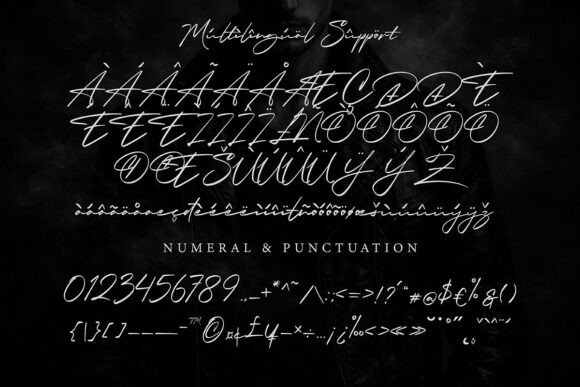 Multilingual Support
ÀÁÂÃÄÅÆÇÐĐÈ
ÉÊËÌÍÎÏŁÑÒÓÔÕÖ
ØŒŠÙÚÛÜŸÝŽ
àáâãäåæçðèéêëìíîïłñòóôõöøœšùúûüýÿž
NUMERAL & PUNCTUATION
0123456789.,_+*^~/\:;<=>!?'"#@$€%&()
{|}[]—–-™©¤¢£¥−×÷…¡¿‰<>«»